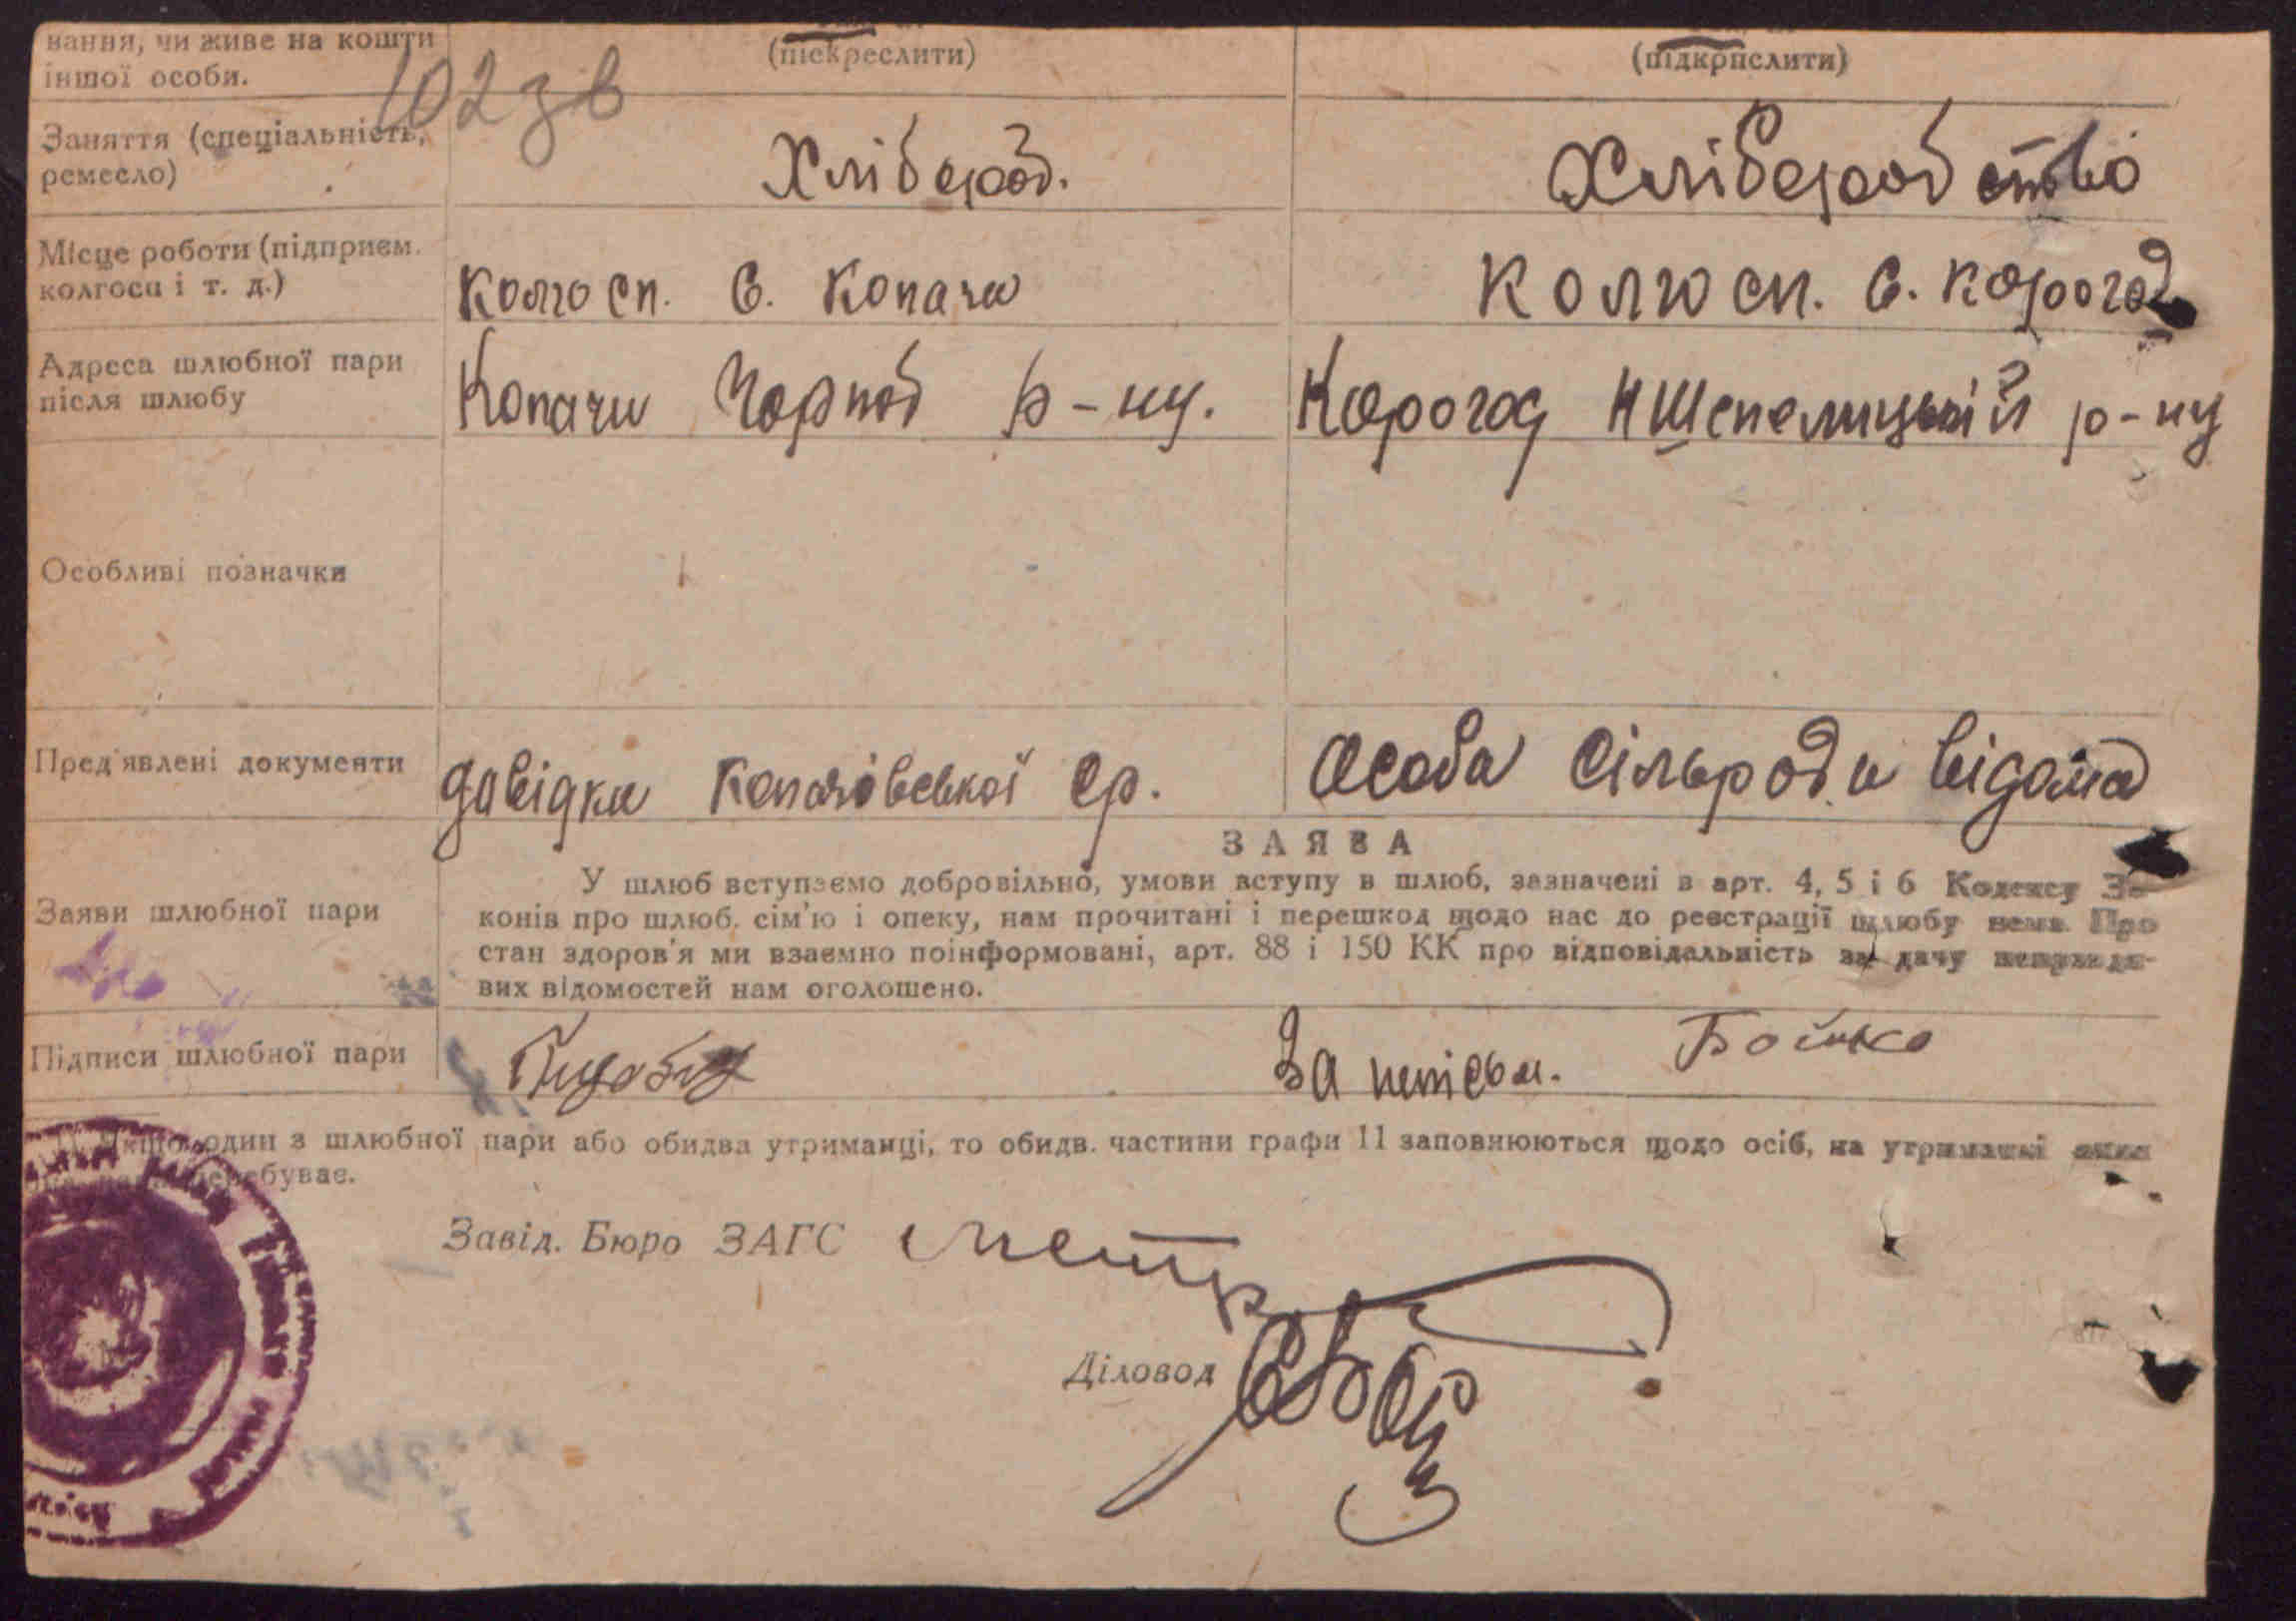 вання, чи живе на кошти
іншої особи.
(піскреслити)
(підкрпслити)
102 зв
Заняття (спеціальність,
ремесло)
Хлібороб.
Хліборобство
Місце роботи (підприєм.
колгосп і т. д.)
Колгосп. С. Копачи
Колгосп. С. Корогод
Адреса шлюбної пари
після шлюбу
Копачи Чорноб р-ну.
Корогод НШепелицький р-ну
Особливі позначки
Пред'явлені документи
довідки Копачівської ср.
Особа Сільроди відома
ЗАЯВА
Заяви шлюбної пари
У шлюб вступаємо добровільно, умови вступу в шлюб, зазначені в арт. 4, 5 і 6 Кодексу За-
конів про шлюб. сім'ю і опеку, нам прочитані і перешкод щодо нас до реєстрації шлюбу нема. Про
стан здоров'я ми взаємно поінформовані, арт. 88 і 150 КК про відповідальність за дачу неправди-
вих відомостей нам оголошено.
Підписи шлюбної пари
За Бойко
Якщо один з шлюбної пари або обидва утриманці, то обидв. частини графи 11 заповнюються щодо осіб, на утриманні яких
перебуває.
Завід. Бюро ЗАГС
Діловод